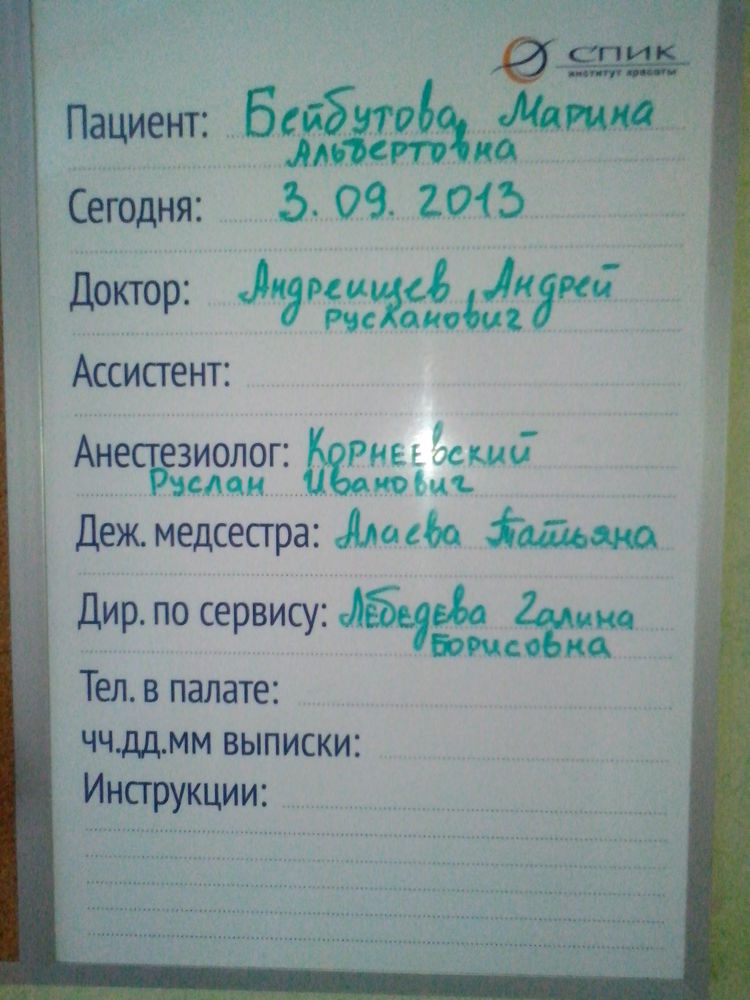 СПИК
институт красоты
Пациент: Бейбутова Марина
Альбертовна
Сегодня: 3.09.2013
Доктор: Андреищев Андрей
Русланович
Ассистент:
Анестезиолог: Корнеевский
Руслан Иванович
Деж. медсестра: Алаева Татьяна
Дир. по сервису: Лебедева Галина
Борисовна
Тел. в палате:
чч.дд.мм выписки:
Инструкции: